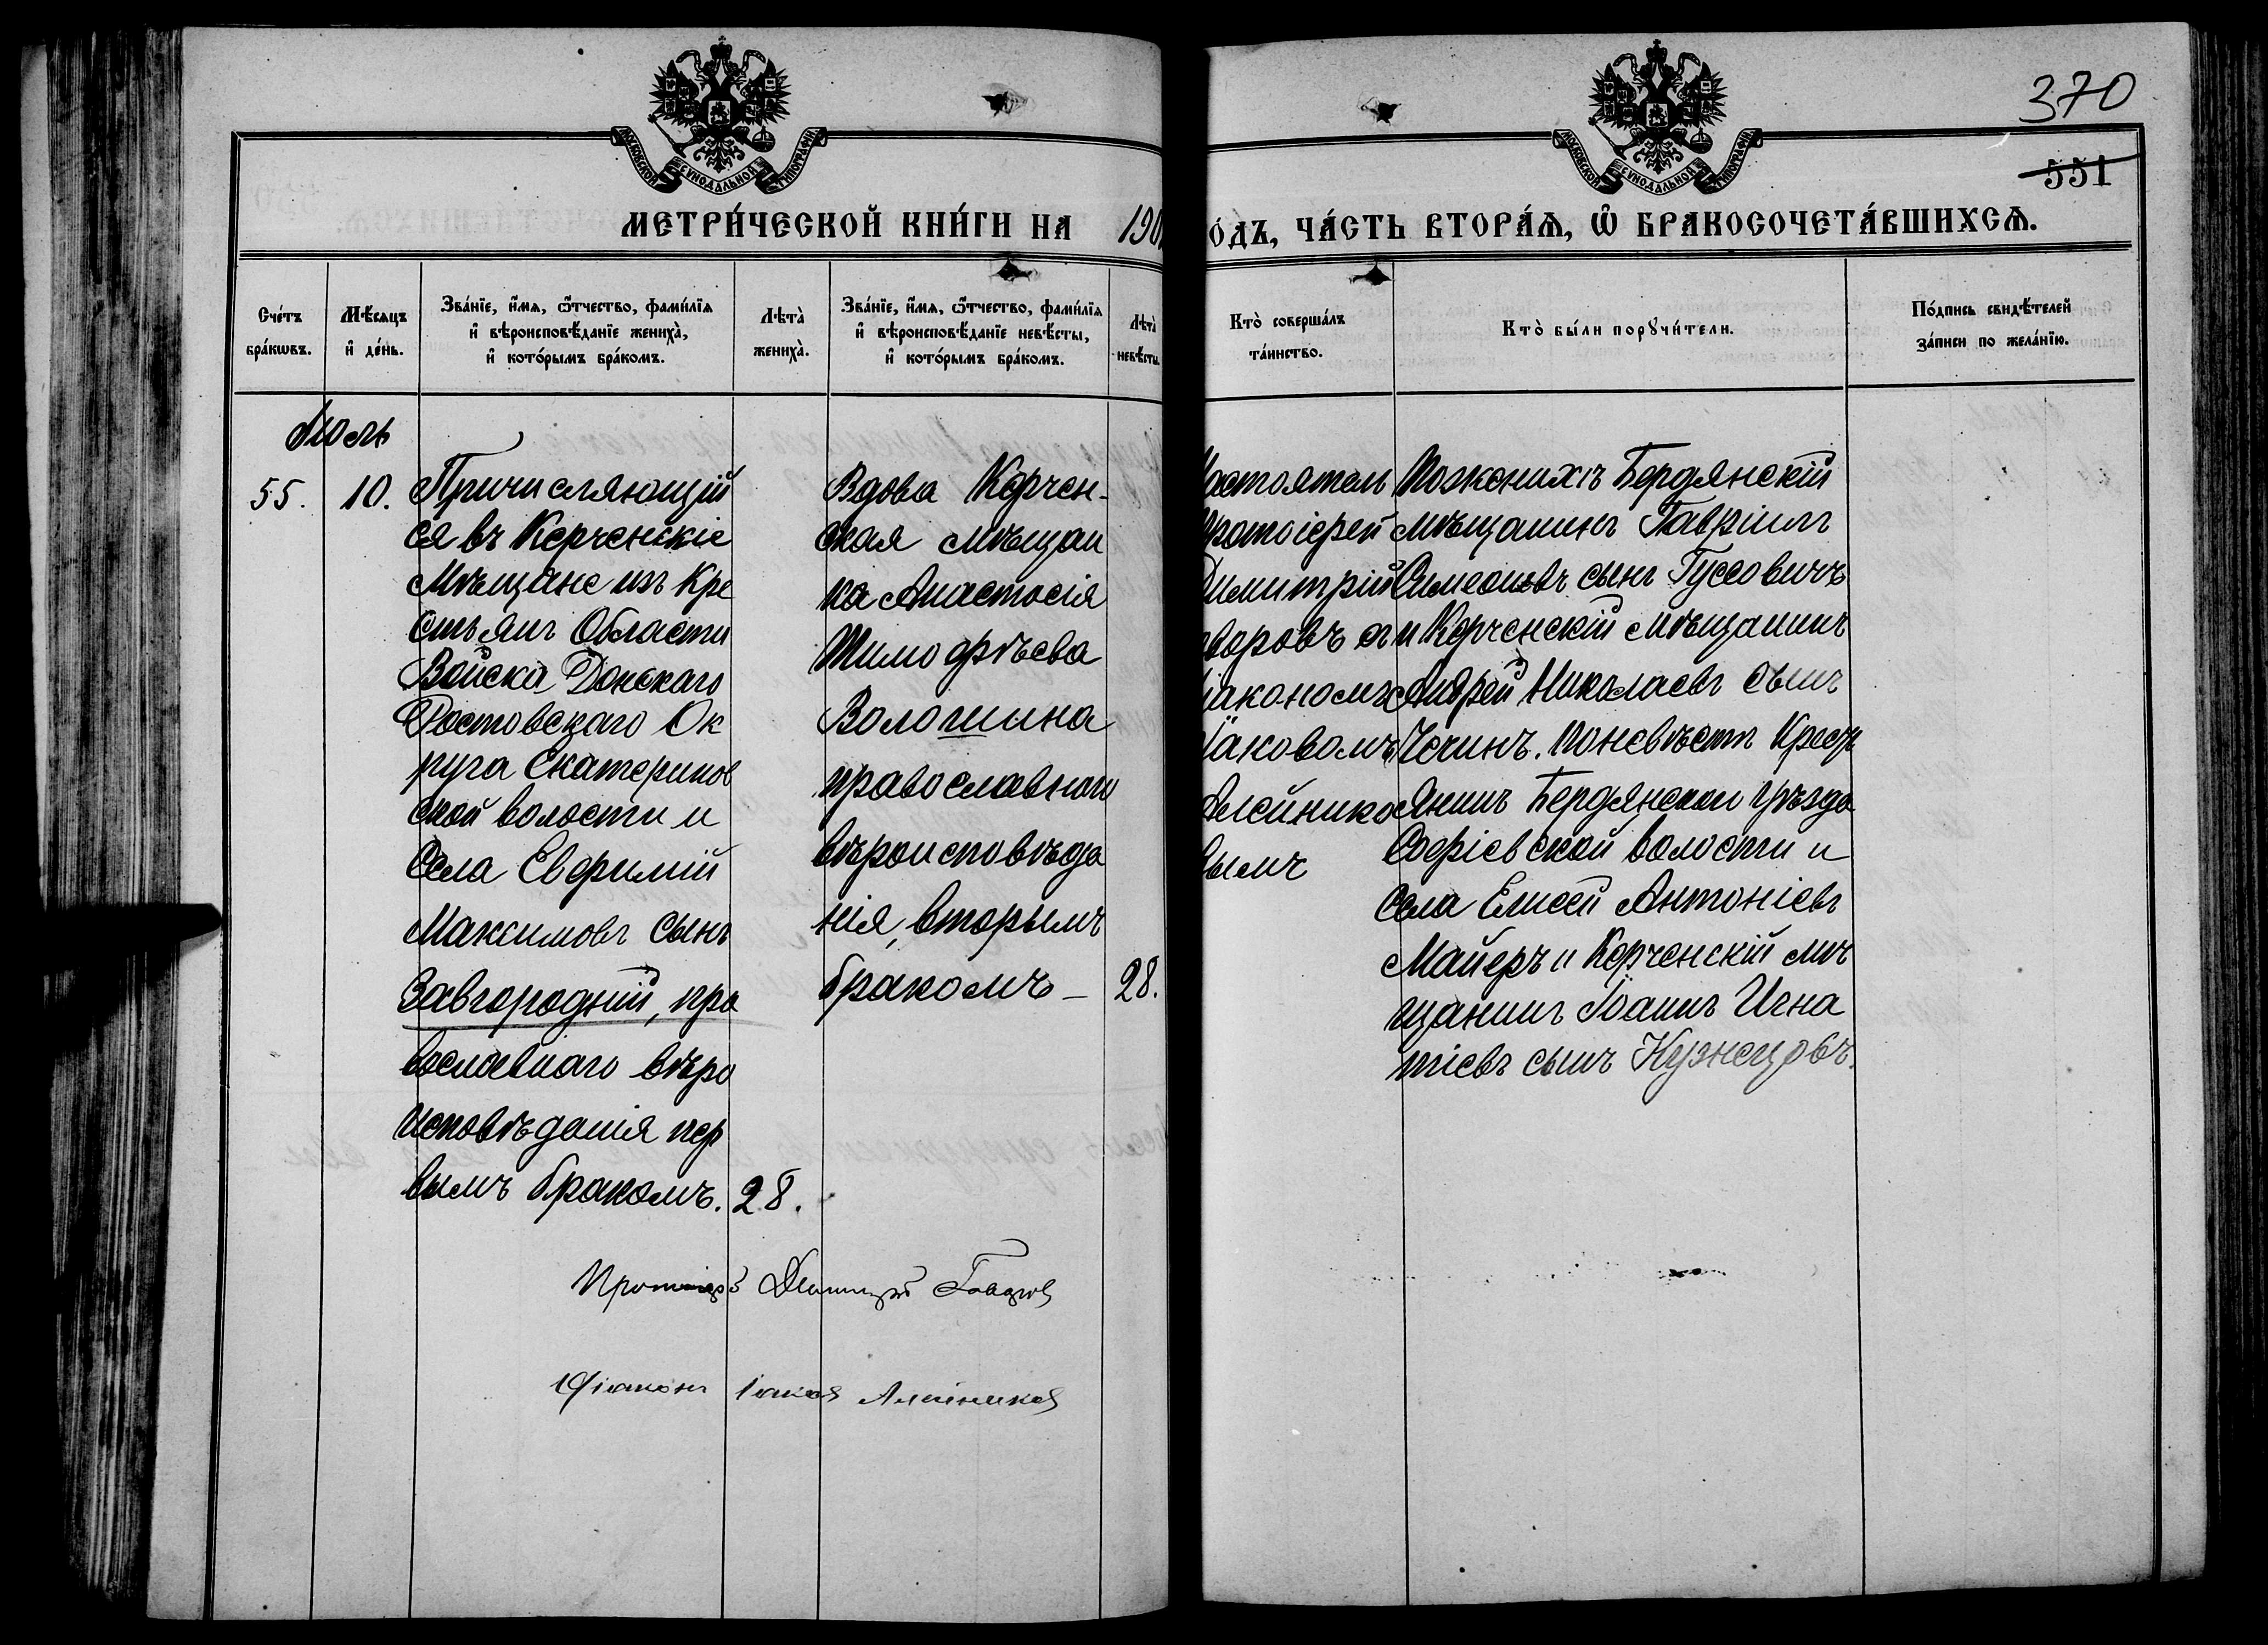 МОСКОВСКОЙ СѴНОДАЛЬНОЙ ТИПОГРАФІИ
МОСКОВСКОЙ СѴНОДАЛЬНОЙ ТИПОГРАФІИ
370
551
МЕТРИ́ЧЕСКОЙ КНИ́ГИ НА 190
О́ДЪ, ЧА́СТЬ ВТОРА́Ѧ, Ѽ БРАКОСОЧЕТА́ВШИХСѦ.
Сче́тъ бра́кѡвъ.
Мѣ́сяцъ и҆ де́нь.
Зва́нїе, и҆́мѧ, ѻ҆́тчество, фами́лїѧ
и҆ вѣроисповѣ́данїе жениха̀,
и҆ кото́рымъ бра́комъ.
Лѣта̀ жениха̀.
Зва́нїе, и҆́мѧ, ѻ҆́тчество, фами́лїѧ
и҆ вѣроисповѣ́данїе невѣ́сты,
и҆ кото́рымъ бра́комъ.
Лѣта̀ невѣ́сты.
Кто̀ соверша́лъ та́инство.
Кто̀ бы́ли порꙋчи́тели.
По́дпись свидѣ́телей за́писи по жела́нїю.
Июль
55.
10.
Причисляющій
ся въ Керченскіе
Мѣщане изъ Кре
стьянъ Области
Войска Донскаго
Ростовскаго Ок
руга Екатеринов
ской волости и
села Евфимій
Максимовъ сынъ
Завгородній, пра
вославнаго вѣро
исповѣданія пер
вымъ бракомъ.
28.
Вдова Керчен-
ская мѣщан
ка Анастасія
Тимофѣева
Волошина
православнаго
вѣроисповѣда
нія, вторымъ
бракомъ –
28.
астоятель
ротоіерей
Димитрій
воровъ съ
іакономъ
Іаковомъ
Алейнико
вымъ
По женихѣ Бердянскій
мѣщанинъ Гавріилъ
Симеоновъ сынъ Гуссовичъ
и Керченскій мѣщанинъ
Андрей Николаевъ сынъ
Чечинъ. По невѣстѣ Кресть
янинъ Бердянскаго уѣзда
Софіевской волости и
села Елисей Антоніевъ
Майеръ и Керченскій мѣ
щанинъ Іоаннъ Игна
тіевъ сынъ Кузнецовъ.
Протоіерей Димитрій Говоров
Діаконъ Іаков Алейников